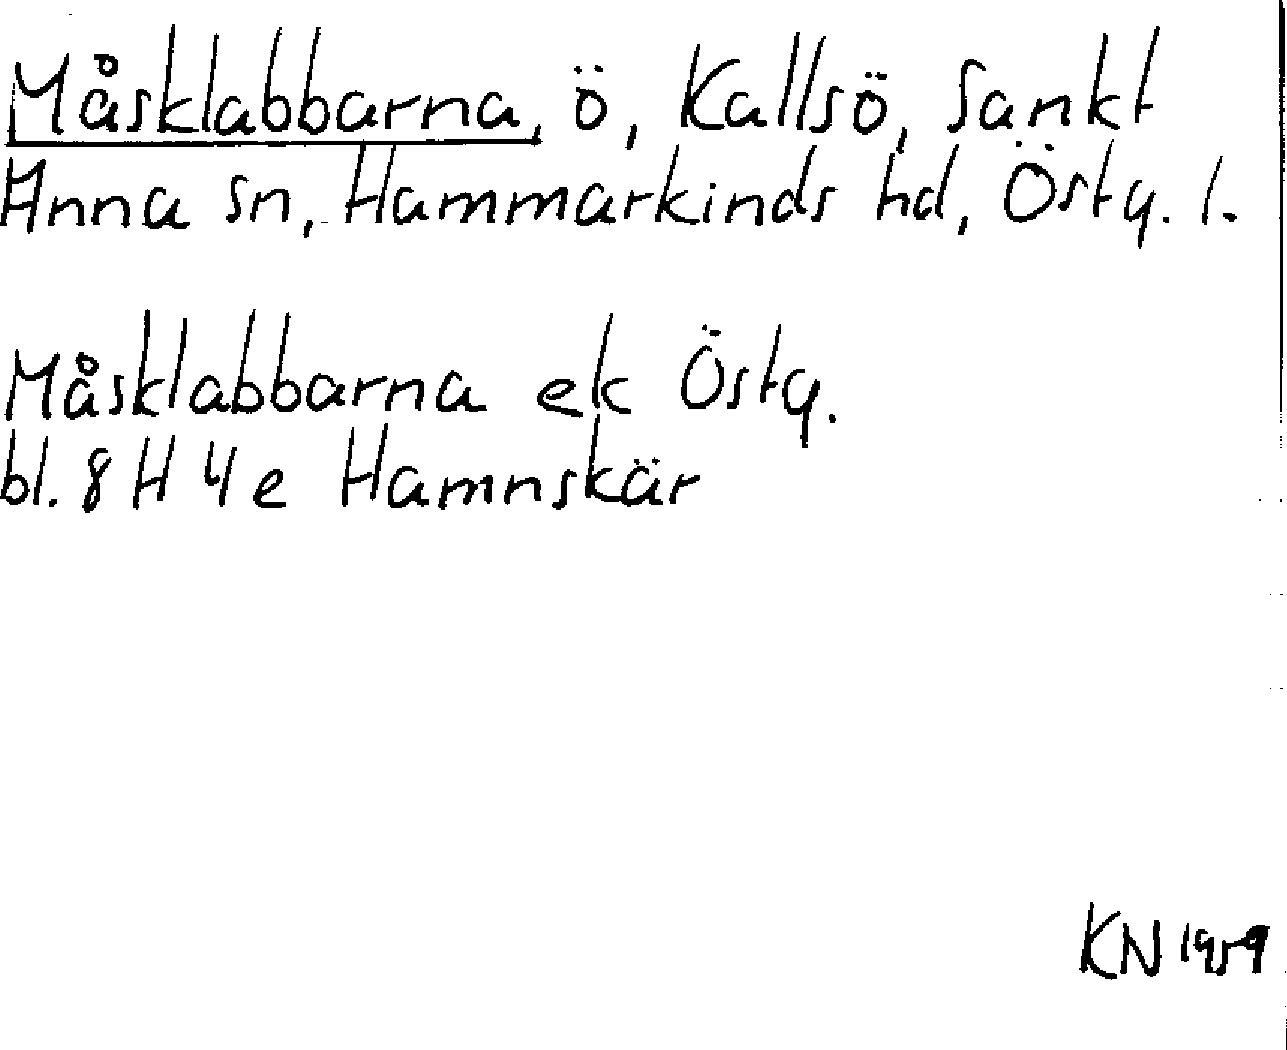 Måsklabbarna, ö, Kallsö, Sankt
Anna sn, Hammarkinds hd, Östg. l.
Måsklabbarna ek Östg.
bl. 8 H 4 e Hamnskär
KN 1959